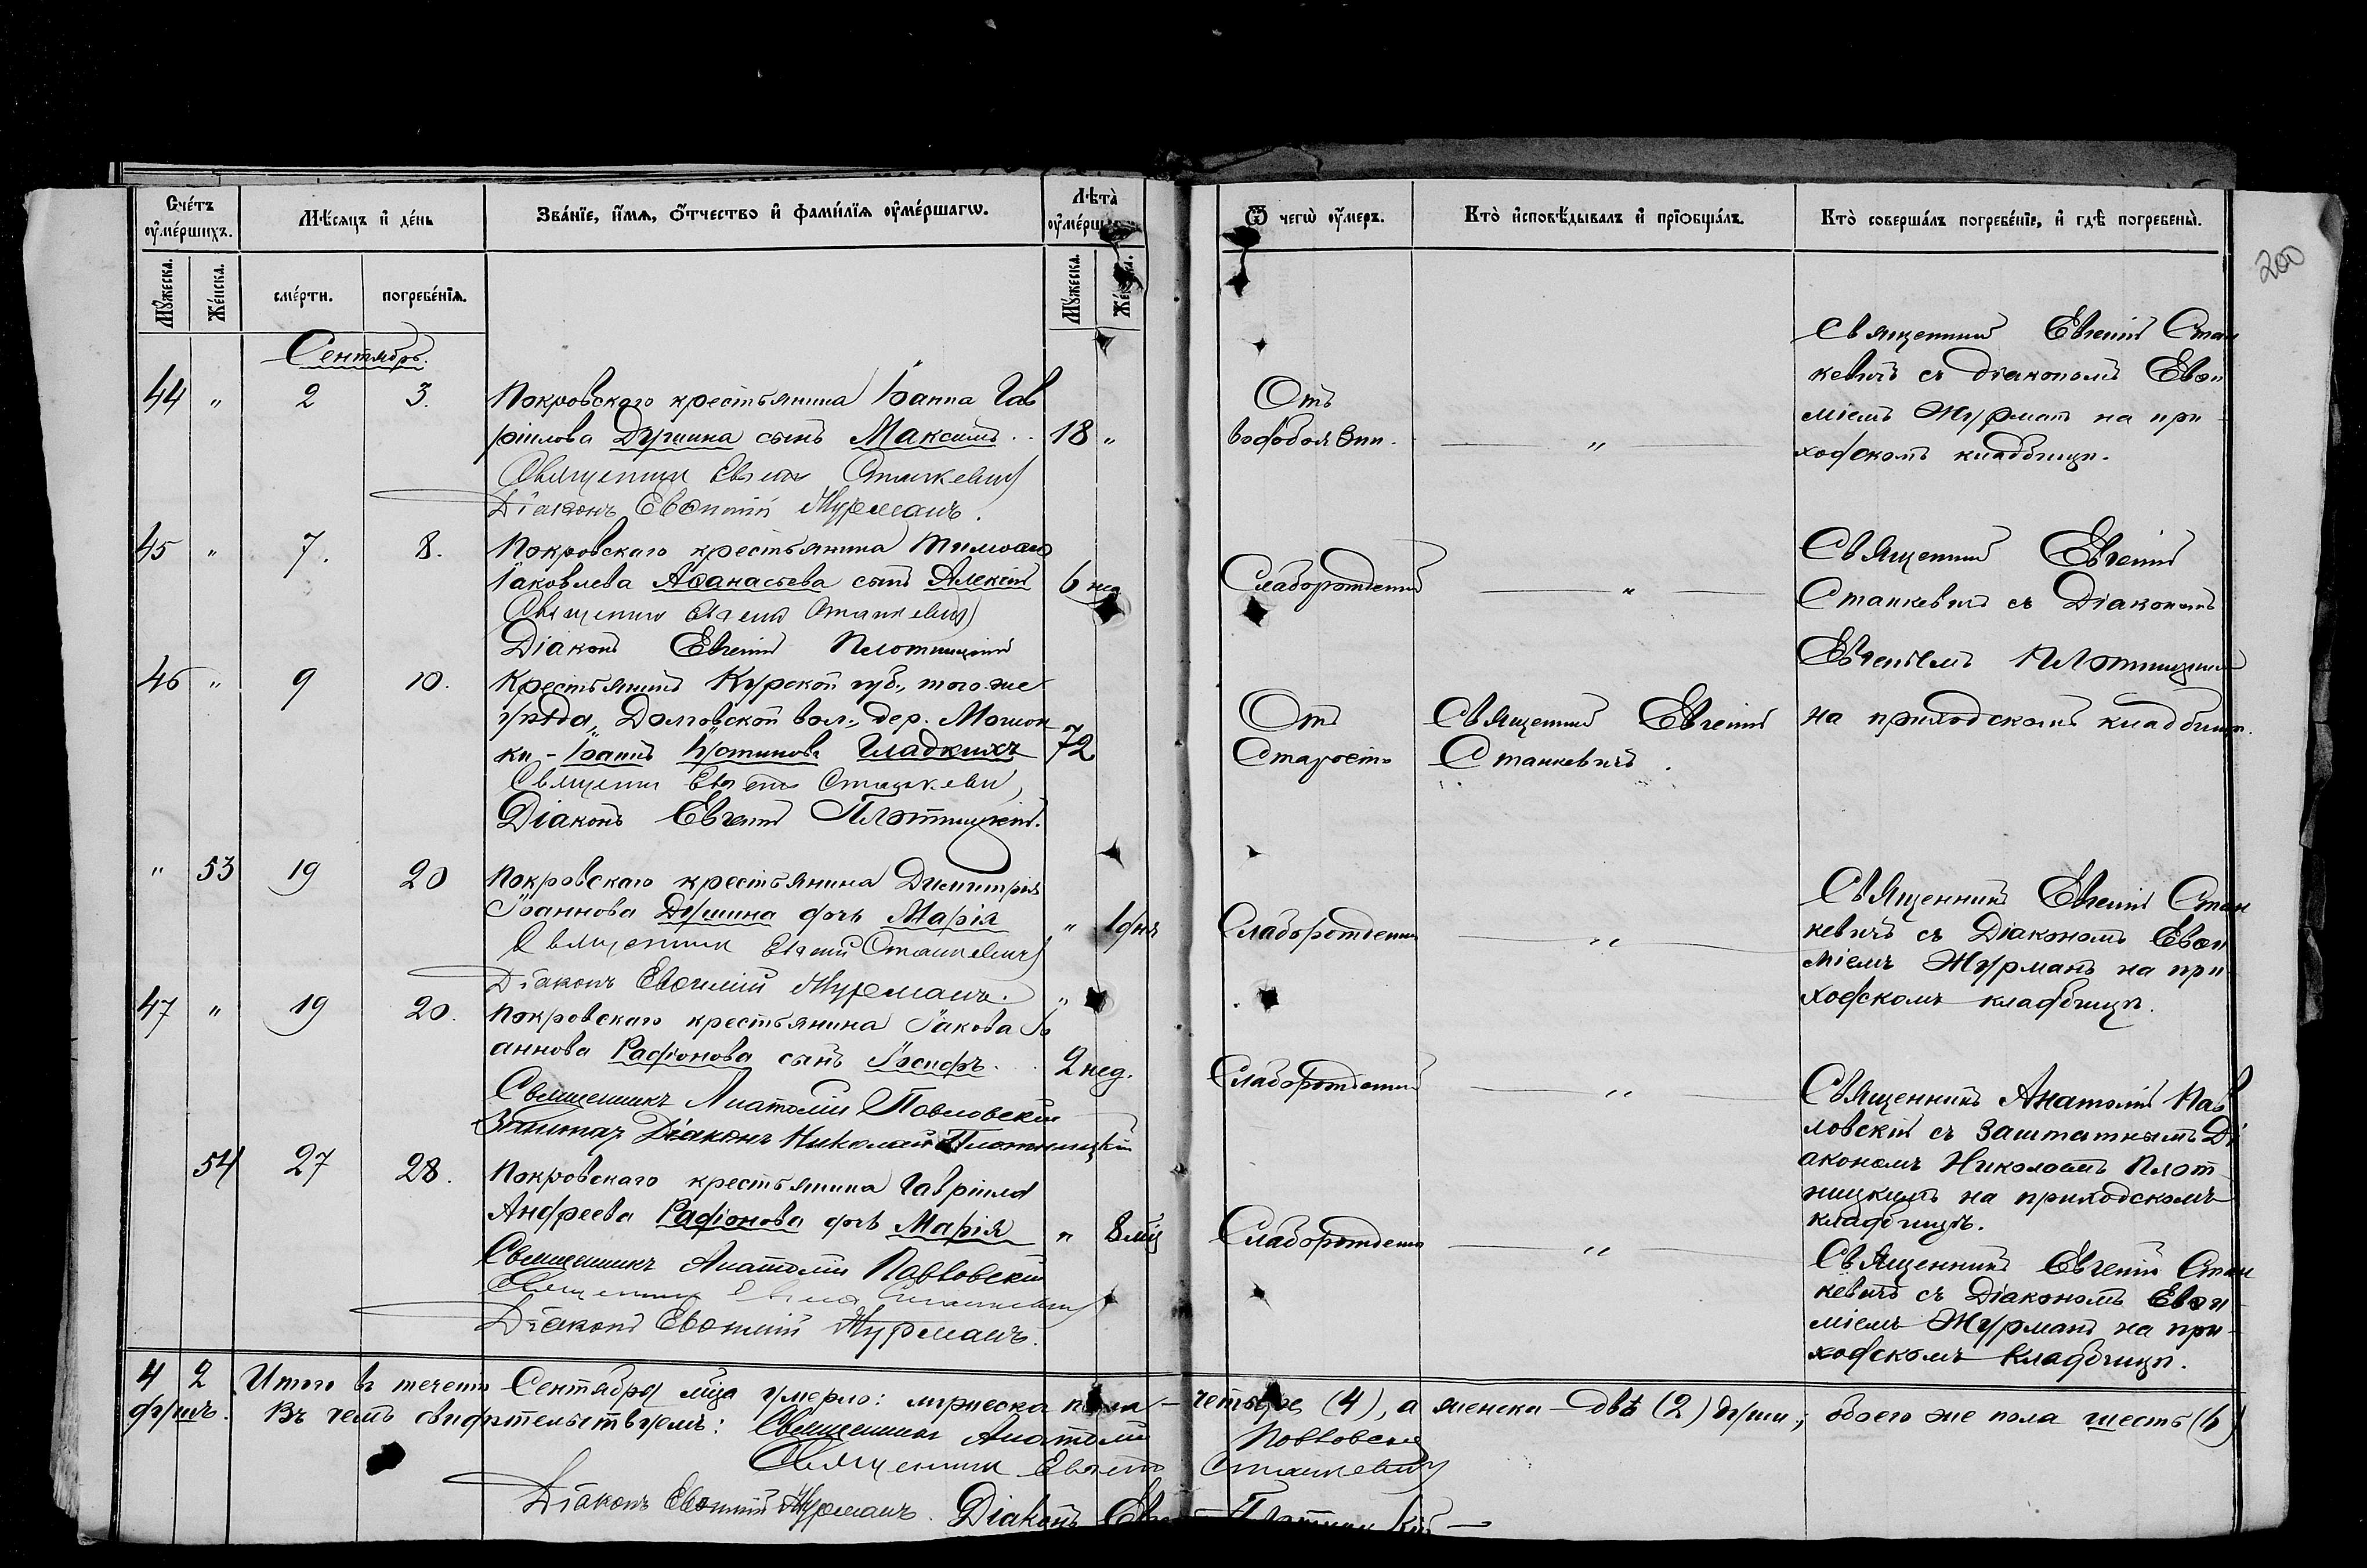 Счетъ оумершихъ.
Мѣсяцъ и день
Званїе, имя, отчество и фамилїя оумершагѡ.
Лѣта
Ѿ чегѡ оумеръ.
Кто исповѣдывалъ и прїобщалъ.
Кто совершалъ погребенїе, и гдѣ погребены.
200
Мужеска.
Женска.
смерти.
погребенїя.
Мужеска.
Сентябрь.
44 " 2 3. Покровскаго крестьянина Іоанна Гав
ріилова Душина сынъ Максимъ .. 18 "
Священникъ Евгеній Станкевичъ
Діаконъ Евѳимій Журманъ.
Отъ
"
Священникъ Евгеній Стан
кевичъ съ діакономъ Евѳи
міемъ Журманъ на при-
ходскомъ кладбищѣ.
45 " 7. 8. Покровскаго крестьянина
Іаковлева Аѳанасьева сынъ Алексій 6 нед
Священникъ Евгеній Станкевичъ
Діаконъ Евгеній Плотницкій
Слаборожденный "
Священникъ Евгеній
Станкевичъ съ Діакономъ
Евгеніемъ Плотницкимъ
на приходскомъ кладбищѣ.
46 " 9 10. Крестьянинъ Курской губ., того-же
уѣзда, Долговской вол., дер.
ки - Іоаннъ Іустиновъ Гладкихъ 72
Священникъ Евгеній Станкевичъ
Діаконъ Евгеній Плотницкій.
Отъ
Старости
Священникъ Евгеній
Станкевичъ.
" 53 19 20 Покровскаго крестьянина Димитрія
Іоаннова Душина дочь Марія " 1 дня
Священникъ Евгеній Станкевичъ
Діаконъ Евѳимій Журманъ.
Слаборожденная "
Священникъ Евгеній Стан
кевичъ съ Діакономъ Евѳи
міемъ Журманъ на при-
ходскомъ кладбищѣ.
47 " 19 20. Покровскаго крестьянина Іакова Іо
аннова Радіонова сынъ Іосифъ. 2 нед.
Священникъ Анатолій Павловскій
Заштатный Діаконъ Николай Плотницкій
Слаборожденный "
Священникъ Анатолій Пав
ловскій съ Заштатнымъ Ді
акономъ Николаемъ Плот
ницкимъ на приходскомъ
кладбищѣ.
54 27 28. Покровскаго крестьянина Гавріила
Андреева Радіонова дочь Марія " 8 мѣц
Священникъ Анатолій Павловскій
Священникъ Евгеній Станкевичъ
Діаконъ Евѳимій Журманъ.
Слаборожденная "
Священникъ Евгеній Стан
кевичъ съ Діакономъ Евѳи
міемъ Журманъ на при-
ходскомъ кладбищѣ.
4 2 Итого въ теченіи Сентября мѣца умерло: мужеска пола - четыре (4), а женска - двѣ (2) души, обоего же пола шесть (6)
душъ. Въ чемъ свидѣтельствуемъ: Священникъ Анатолій Павловскій
Священникъ Евгеній Станкевичъ
Діаконъ Евѳимій Журманъ. Діаконъ Плотницкій